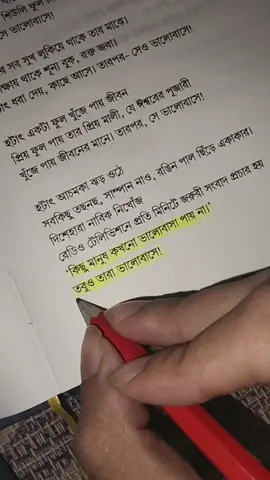 শিউলি ফুল
সে ভালোবাসে।
র সব সুখ লুকিয়ে থাকে তার মাঝে।
ক্ষায় থাকে শূন্য বুক, রক্ত জবা।
ৎ ধরা দেয়, কাছে আসে। তারপর– সেও ভালোবাসে।
হটাৎ একটা ফুল খুঁজে পায় জীবন
প্রিয় ফুল পায় তার প্রিয় মালী, যে ঈশ্বরের পূজারী
খুঁজে পায় জীবনের মানে। তারপর, সে ভালোবাসে।
হটাৎ আচমকা ঝড় ওঠে
সবকিছু তছনছ, সাম্পান নাও, রঙিন পাল ছিঁড়ে একাকার।
দিশেহারা নাবিক নিখোঁজ
রেডিও টেলিভিশনে প্রতি মিনিটে জরুরী সংবাদ প্রচার হয়
'কিছু মানুষ কখনো ভালোবাসা পায় না।'
তবুও তারা ভালোবাসে!